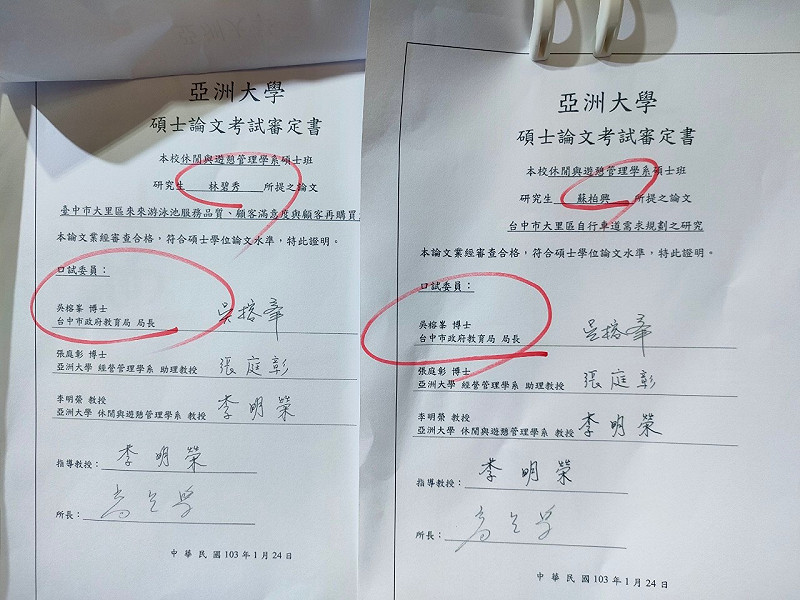 亞洲大學
碩士論文考試審定書
本校休閒與遊憩管理學系碩士班
研究生 林碧秀 所提之論文
臺中市大里區來來游泳池服務品質、顧客滿意度與顧客再購買
本論文業經審查合格，符合碩士學位論文水準，特此證明。
口試委員：
吳榕峯 博士
台中市政府教育局 局長 吳榕峯
張庭彰 博士
亞洲大學 經營管理學系 助理教授 張庭彰
李明榮 教授
亞洲大學 休閒與遊憩管理學系 教授 李明榮
指導教授： 李明榮
所長：
中華民國103年1月24日
亞洲大學
碩士論文考試審定書
本校休閒與遊憩管理學系碩士班
研究生 蘇柏興 所提之論文
台中市大里區自行車道需求規劃之研究
本論文業經審查合格，符合碩士學位論文水準，特此證明。
口試委員：
吳榕峯 博士
台中市政府教育局 局長 吳榕峯
張庭彰 博士
亞洲大學 經營管理學系 助理教授 張庭彰
李明榮 教授
亞洲大學 休閒與遊憩管理學系 教授 李明榮
指導教授： 李明榮
所長：
中華民國103年1月24日